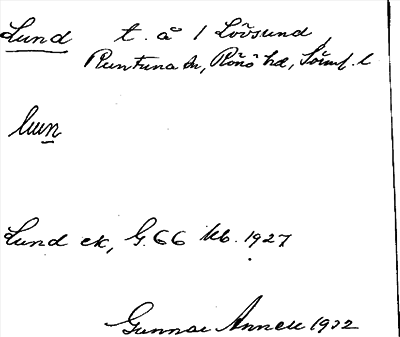 Lund t. å 1 Lövsund,
Runtuna sn, Rönö hd, Sörml. l
lun
Lund ek, G. 66 Kb. 1927
Gunnar Annell 1932